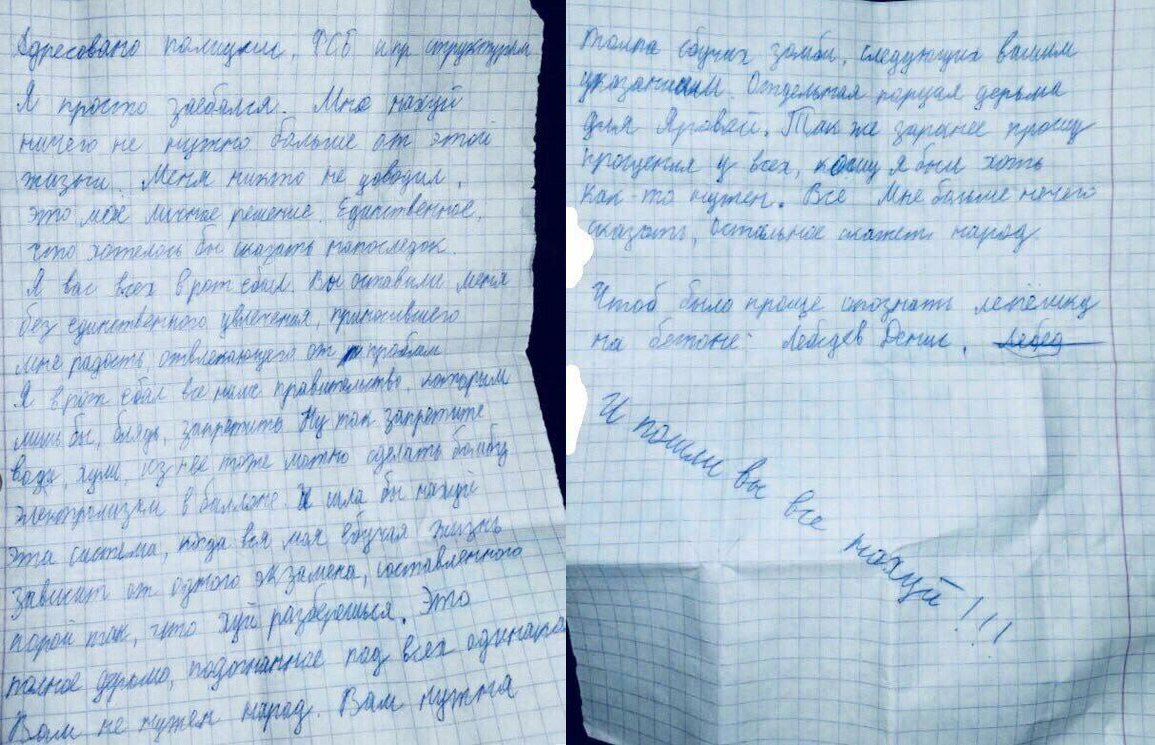 Адресовано полиции, ФСБ и пр структурам
Я просто заебался. Мне нахуй
ничего не нужно больше от этой
жизни. Меня никто не доводил,
это моё личное решение. Единственное,
что хотелось бы сказать напоследок.
Я вас всех в рот ебал. Вы оставили меня
без единственного увлечения, приносившего
мне радость, отвлекающего от проблем
Я в рот ебал все наше правительство, которым
лишь бы, блядь, запретить. Ну так запретите
воду, хули. Из нее тоже можно сделать бомбу
электролизом в балляне. И шла бы нахуй
эта система, когда вся моя ебучая жизнь
зависит от одного экзамена, составленного
порой так, что хуй разберешься. Это
полное дерьмо, подогнанное под всех одинаково
Вам не нужен народ. Вам нужна
толпа ебучих зомби, следующих вашим
указаниям. Отдельная порция дерьма
для Яровой. Так же заранее прошу
прощения у всех, кому я был хоть
как то нужен. Все Мне больше нечего
сказать, остальное скажет народ
Чтоб было проще опознать лепёшку
на бетоне: Лебедев Денис, Лебед
И пошли вы все нахуй!!!